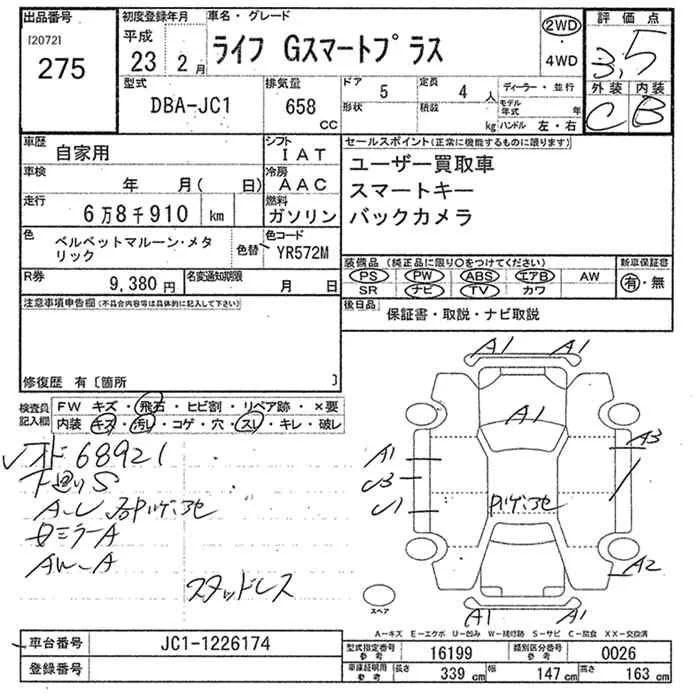 出品番号
[2072]
275
初度登録年月
平成
23年 2月
車名・グレード
ライフ Gスマートプラス
2WD
・
4WD
評価点
3.5
外装 内装
C B
型式
DBA-JC1
排気量
658
CC
ドア 5
形状
定員 4 人
積載 kg
ディーラー・並行
モデル年式 年
ハンドル 左・右
車歴
自家用
シフト
IAT
車検
年 月( 日)
冷房
AAC
走行
6万8千910 km
燃料
ガソリン
色
ベルベットマルーン・メタリック
色替
色コード
YR572M
R券
9,380 円
名変通知期限
月 日
セールスポイント(正常に機能するものに限ります)
ユーザー買取車
スマートキー
バックカメラ
装備品 (純正品に限り○をつけてください)
PS PW ABS エアB AW
SR ナビ TV カワ
新車保証書
有・無
後日品
保証書・取説・ナビ取説
注意事項申告欄(不具合内容等は具体的に記入して下さい)
修復歴 有〔箇所 〕
検査員記入欄
FW キズ・飛石・ヒビ割・リペア跡・×要
内装 キズ・汚レ・コゲ・穴・スレ・キレ・破レ
68921
下廻りS
A-U
ミラーA
AW-A
スタッドレス
A1 A1
A1
A1
A3
U3
U1
A2
A1 A1
スペア
A-キズ E-エクボ U-凹み W-補修跡 S-サビ C-腐食 XX-交換済
車台番号
JC1-1226174
登録番号
型式指定番号
参考
16199
類別区分番号
参考
0026
車庫証明用
参考
長さ 339 cm 幅 147 cm 高さ 163 cm